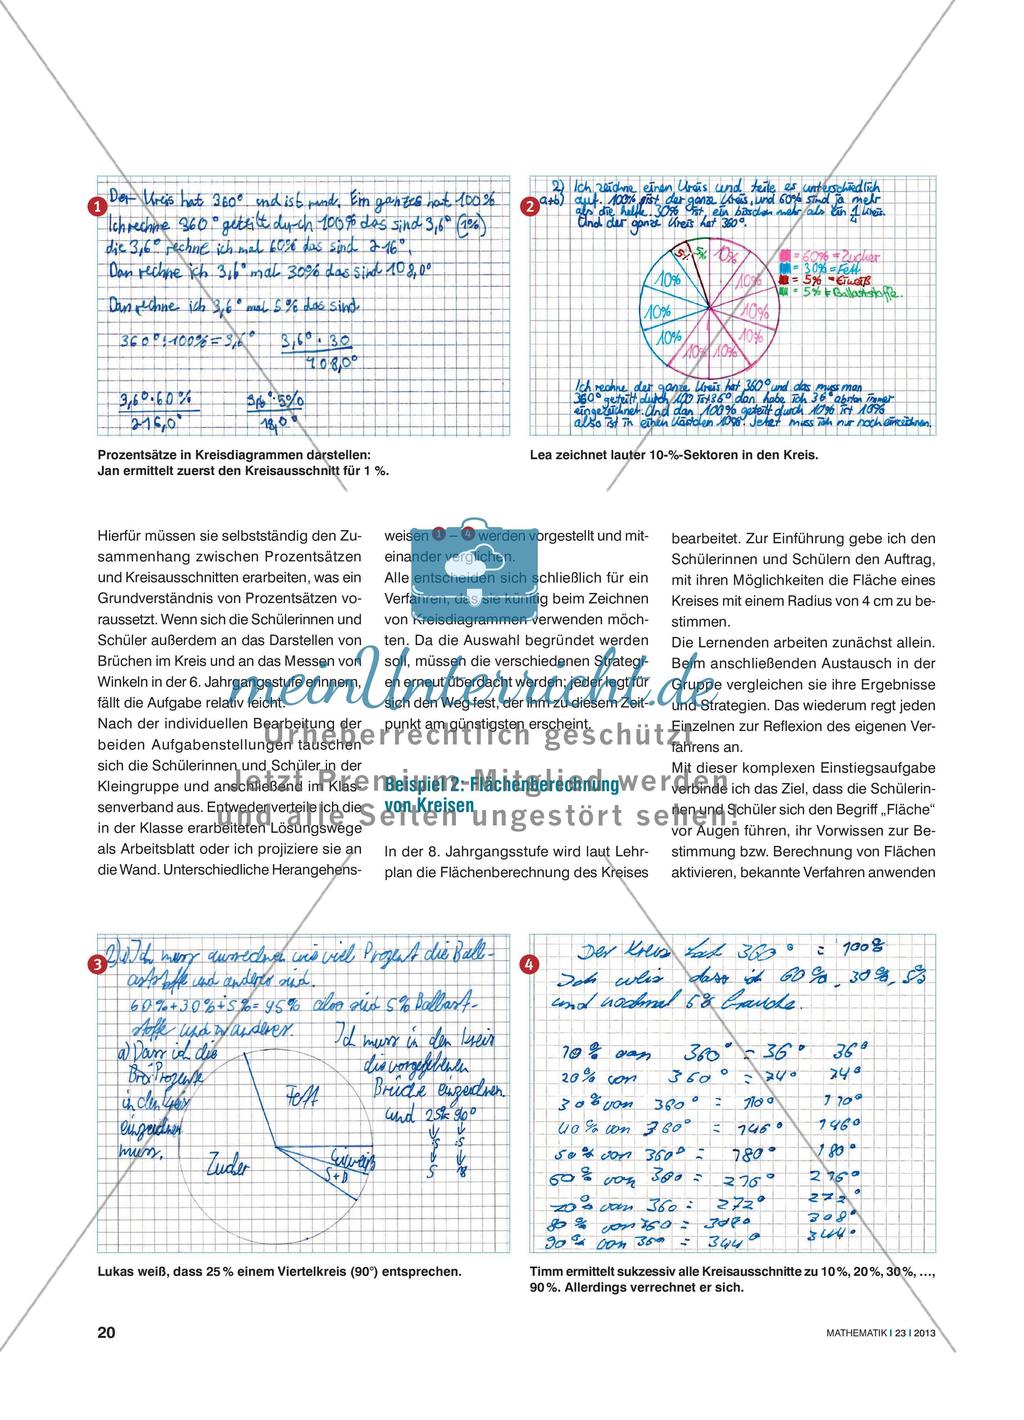 1
Der Kreis hat 360° und ist rund. Ein ganzes hat 100%
Ich rechne 360° geteilt durch 100% das sind 3,6° (1%)
die 3,6° rechne ich mal 60% das sind 216°.
Dan rechne ich 3,6° mal 30% das sind 108,0°
Dan rechne ich 3,6° mal 5% das sind
360°:100%=3,6° 3,6°·30
108,0°
3,6°·60% 3,6°·5%
216,0° 18,0°
2
2) Ich zeichne einen Kreis und teile es unterschiedlich
a+b) auf. 100% ist der ganze Kreis, und 60% sind ja mehr
als die helfe. 30% ist ein bisschen mehr als ein 1/4 Kreis.
Und der ganze Kreis hat 360°.
5% 5% 10%
10% 10%
10% 10%
10% 10%
10% 10%
= 60% = Zucker
= 30% = Fett
= 5% = Eiweiß
= 5% = Ballaststoffe.
Ich rechne der ganze Kreis hat 360° und das muss man
360° geteilt durch 100 ist 36° dan habe ich 36° abstan immer
eingezeichnet. Und dan 100% geteilt durch 10% ist 10%
also ist in einen Kästchen 10%. Jetzt muss ich nur noch einzeichnen.
Prozentsätze in Kreisdiagrammen darstellen:
Jan ermittelt zuerst den Kreisausschnitt für 1 %.
Lea zeichnet lauter 10-%-Sektoren in den Kreis.
Hierfür müssen sie selbstständig den Zu-
sammenhang zwischen Prozentsätzen
und Kreisausschnitten erarbeiten, was ein
Grundverständnis von Prozentsätzen vo-
raussetzt. Wenn sich die Schülerinnen und
Schüler außerdem an das Darstellen von
Brüchen im Kreis und an das Messen von
Winkeln in der 6. Jahrgangsstufe erinnern,
fällt die Aufgabe relativ leicht.
Nach der individuellen Bearbeitung der
beiden Aufgabenstellungen tauschen
sich die Schülerinnen und Schüler in der
Kleingruppe und anschließend im Klas-
senverband aus. Entweder verteile ich die
in der Klasse erarbeiteten Lösungswege
als Arbeitsblatt oder ich projiziere sie an
die Wand. Unterschiedliche Herangehens-
weisen 1 – 4 werden vorgestellt und mit-
einander verglichen.
Alle entscheiden sich schließlich für ein
Verfahren, das sie künftig beim Zeichnen
von Kreisdiagrammen verwenden möch-
ten. Da die Auswahl begründet werden
soll, müssen die verschiedenen Strategi-
en erneut überdacht werden; jeder legt für
sich den Weg fest, der ihm zu diesem Zeit-
punkt am günstigsten erscheint.
Beispiel 2: Flächenberechnung
von Kreisen
In der 8. Jahrgangsstufe wird laut Lehr-
plan die Flächenberechnung des Kreises
bearbeitet. Zur Einführung gebe ich den
Schülerinnen und Schülern den Auftrag,
mit ihren Möglichkeiten die Fläche eines
Kreises mit einem Radius von 4 cm zu be-
stimmen.
Die Lernenden arbeiten zunächst allein.
Beim anschließenden Austausch in der
Gruppe vergleichen sie ihre Ergebnisse
und Strategien. Das wiederum regt jeden
Einzelnen zur Reflexion des eigenen Ver-
fahrens an.
Mit dieser komplexen Einstiegsaufgabe
verbinde ich das Ziel, dass die Schülerin-
nen und Schüler sich den Begriff „Fläche“
vor Augen führen, ihr Vorwissen zur Be-
stimmung bzw. Berechnung von Flächen
aktivieren, bekannte Verfahren anwenden
meinUnterricht.de
Urheberrechtlich geschützt
Jetzt Premium-Mitglied werden
und alle Seiten ungestört sehen!
3
Ich muss ausrechnen wie viel Prozent die Ball-
aststoffe und anderes sind.
60%+30%+5%=95% also sind 5% Ballast-
stoffe und anderes.
a) Dass ich die
Prozente
in den Kreis
einzeichnen
muss.
Ich muss in den Kreis
die vorgegebenen
Brüche einzeichnen
und 25% 90°
:5 :5
5 18
Fett
Zucker
Eiweiß
4
Der Kreis hat 360° = 100%
Ich weis dass ich 60%, 30%, 5%
und nochmal 5% brauche.
10% von 360° = 36° 36°
20% von 360° = 74° 74°
30% von 360° = 110° 110°
40% von 360° = 146° 146°
50% von 360° = 180° 180°
60% von 360 = 216° 216°
70% von 360 = 272° 272°
80% von 360 = 308° 308°
90% von 360 = 344° 344°
Lukas weiß, dass 25 % einem Viertelkreis (90°) entsprechen.
Timm ermittelt sukzessiv alle Kreisausschnitte zu 10 %, 20 %, 30 %, …,
90 %. Allerdings verrechnet er sich.
20
MATHEMATIK | 23 | 2013